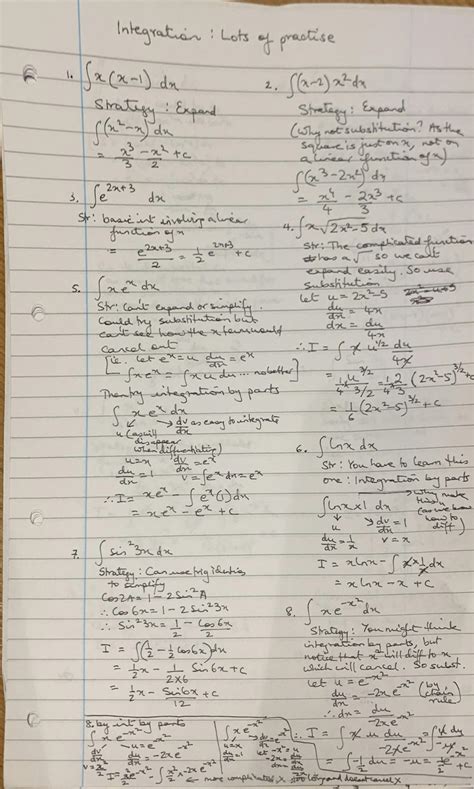 Integration : Lots of practise
1. ∫x(x-1) dx
Strategy : Expand
∫(x²-x) dx
= x³/3 - x²/2 + c
2. ∫(x-2) x² dx
Strategy : Expand
(Why not substitution? As the
square is just on x, not on
a linear function of x)
∫(x³-2x²) dx
= x⁴/4 - 2x³/3 + c
3. ∫e^(2x+3) dx
Str: basic int involving a linear
function of x
= e^(2x+3)/2 = 1/2 e^(2x+3) + c
4. ∫x√(2x²-5) dx
Str: The complicated function
has a √ so we can't
expand easily. So use
substitution
let u = 2x²-5
du/dx = 4x
dx = du/4x
∴ I = ∫x u^(1/2) du/4x
= 1/4 × u^(3/2)/(3/2) = 1/4 × 2/3 (2x²-5)^(3/2) + c
= 1/6 (2x²-5)^(3/2) + c
5. ∫xe^x dx
Str: Can't expand or simplify.
Could try substitution but
can't see how the x term would
cancel out
[i.e. let e^x = u du/dx = e^x
∫xe^x = ∫x u du ... no bother]
Then try integration by parts
∫xe^x dx
u (as it will
disappear
when differentiating)
dv/dx as easy to integrate
u = x dv/dx = e^x
du/dx = 1 v = ∫e^x dx = e^x
∴ I = xe^x - ∫e^x(1) dx
= xe^x - e^x + c
6. ∫lnx dx
Str: You have to learn this
one : Integration by parts
∫lnx × 1 dx
u dv/dx = 1
Why make
this u
(as we know
how to
diff)
du/dx = 1/x v = x
I = xlnx - ∫x × 1/x dx
= xlnx - x + c
7. ∫sin²3x dx
Strategy : Can use trig identities
to simplify
Cos2A = 1 - 2Sin²A
∴ Cos6x = 1 - 2Sin²3x
∴ Sin²3x = 1/2 - Cos6x/2
I = ∫(1/2 - 1/2 cos6x) dx
= 1/2 x - 1/(2x6) Sin6x + c
= 1/2 x - Sin6x/12 + c
8. ∫xe^(-x²) dx
Strategy : You might think
integration by parts, but
notice that x² will diff to x
which will cancel. So subst.
let u = e^(-x²)
du/dx = -2xe^(-x²) (by chain rule)
∴ dx = du/-2xe^(-x²)
∴ I = ∫x u du/-2xe^(-x²)
= ∫-1/2 du = -u/2 = -e^(-x²)/2 + c
8. by int by parts
∫x e^(-x²) dx
dv/dx u = e^(-x²)
v = x²/2 du/dx = -2xe^(-x²)
∫x e^(-x²) dx
u = x
du/dx = 1
← more complicated X